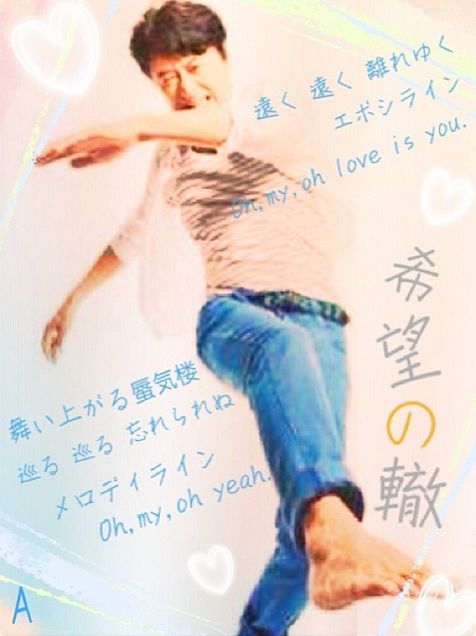 遠く 遠く 離れゆく
エボシライン
Oh,my,oh love is you.
希望の轍
舞い上がる蜃気楼
巡る 巡る 忘れられぬ
メロディライン
Oh,my,oh yeah.
A